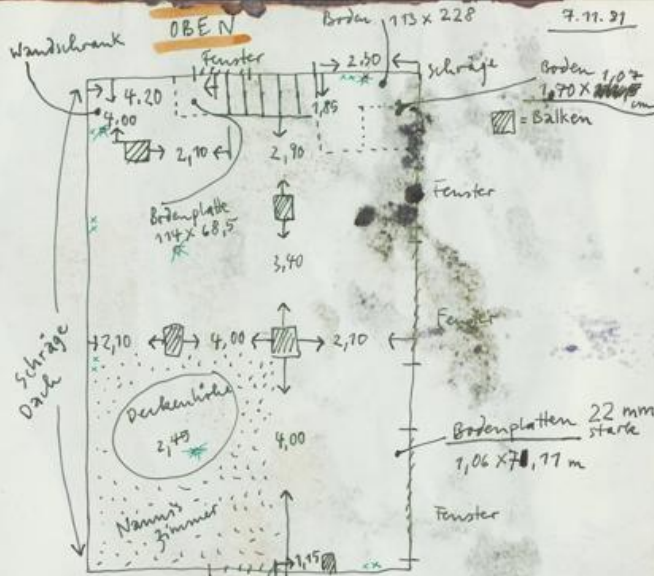 OBEN
Boden 113 x 228
7.11.81
Wandschrank
Fenster
2.30
Schräge
Boden 1,07
1,70 x
cm
4.20
4.00
1,85
= Balken
2,10
2,90
Fenster
Bodenplatte
114 x 68,5
3,40
Schräge
Dach
2,10
4,00
2,10
Fenster
Deckenhöhe
2,45
4,00
Bodenplatten 22 mm
stark
1,06 x 71,11 m
Nanni's
Zimmer
Fenster
1,15